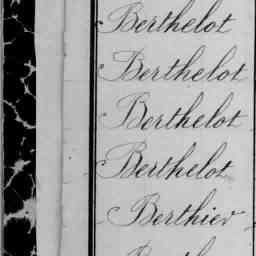 Berthelot
Berthelot
Berthelot
Berthelot
Berthier